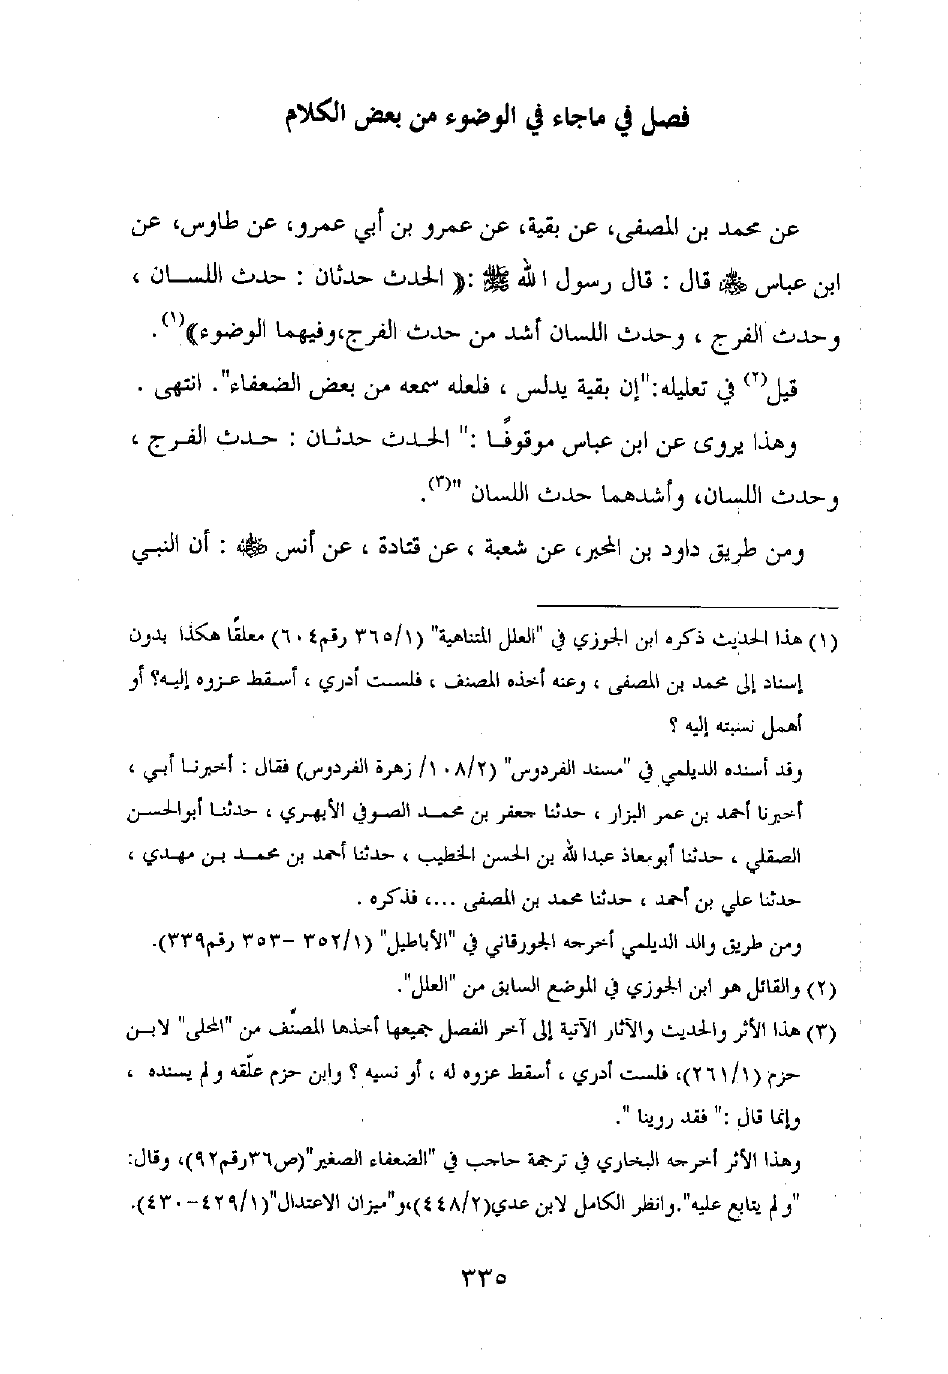 فصل في ماجاء في الوضوء من بعض الكلام
عن محمد بن المصفى، عن بقية، عن عمرو بن أبي عمرو، عن طاوس، عن
ابن عباس ﵁ قال : قال رسول الله ﷺ :﴿ الحدث حدثان : حدث اللسان ،
وحدث الفرج ، وحدث اللسان أشد من حدث الفرج،وفيهما الوضوء﴾(١).
قيل(٢) في تعليله:"إن بقية يدلس ، فلعله سمعه من بعض الضعفاء". انتهى .
وهذا يروى عن ابن عباس موقوفًا :" الحدث حدثان : حدث الفرج ،
وحدث اللسان، وأشدهما حدث اللسان "(٣).
ومن طريق داود بن المحبر، عن شعبة ، عن قتادة ، عن أنس ﵁ : أن النبي
(١) هذا الحديث ذكره ابن الجوزي في "العلل المتناهية" (٣٦٥/١ رقم٦٠٤) معلقًا هكذا بدون
إسناد إلى محمد بن المصفى ، وعنه أخذه المصنف ، فلست أدري ، أسقط عزوه إليه؟ أو
أهمل نسبته إليه ؟
وقد أسنده الديلمي في "مسند الفردوس" (١٠٨/٢/ زهرة الفردوس) فقال : أخبرنا أبي ،
أخبرنا أحمد بن عمر البزار ، حدثنا جعفر بن محمد الصوفي الأبهري ، حدثنا أبوالحسن
الصقلي ، حدثنا أبومعاذ عبدالله بن الحسن الخطيب ، حدثنا أحمد بن محمد بن مهدي ،
حدثنا علي بن أحمد ، حدثنا محمد بن المصفى ...، فذكره .
ومن طريق والد الديلمي أخرجه الجورقاني في "الأباطيل" (٣٥٢/١ -٣٥٣ رقم٣٣٩).
(٢) والقائل هو ابن الجوزي في الموضع السابق من "العلل".
(٣) هذا الأثر والحديث والآثار الآتية إلى آخر الفصل جميعها أخذها المصنِّف من "المحلى" لابن
حزم (٢٦١/١)، فلست أدري ، أسقط عزوه له ، أو نسيه ؟ وابن حزم علّقه ولم يسنده ،
وإنما قال :" فقد روينا ".
وهذا الأثر أخرجه البخاري في ترجمة حاجب في "الضعفاء الصغير"(ص٣٦رقم٩٢)، وقال:
"ولم يتابع عليه".وانظر الكامل لابن عدي(٤٤٨/٢)،و"ميزان الاعتدال"(٤٢٩/١-٤٣٠).
٣٣٥